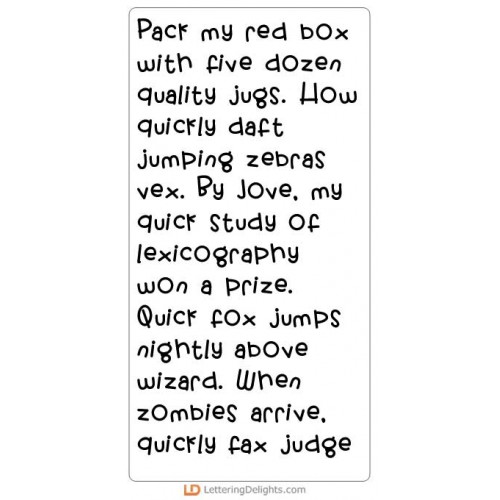 Pack my red box
with five dozen
quality jugs. How
quickly daft
jumping zebras
vex. By Jove, my
quick study of
lexicography
won a prize.
Quick fox jumps
nightly above
wizard. When
zombies arrive,
quickly fax judge
LD LetteringDelights.com